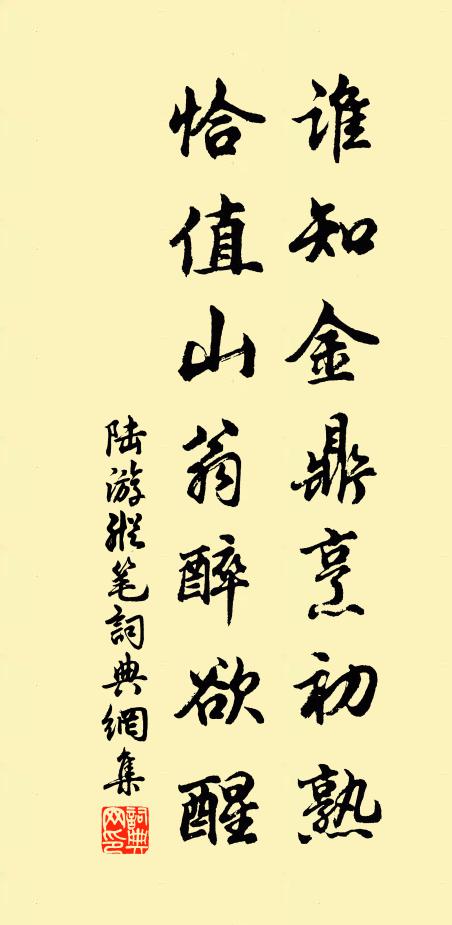 谁知金鼎烹初熟
恰值山翁醉欲醒
陆游纵笔詞典網集
詞典网印